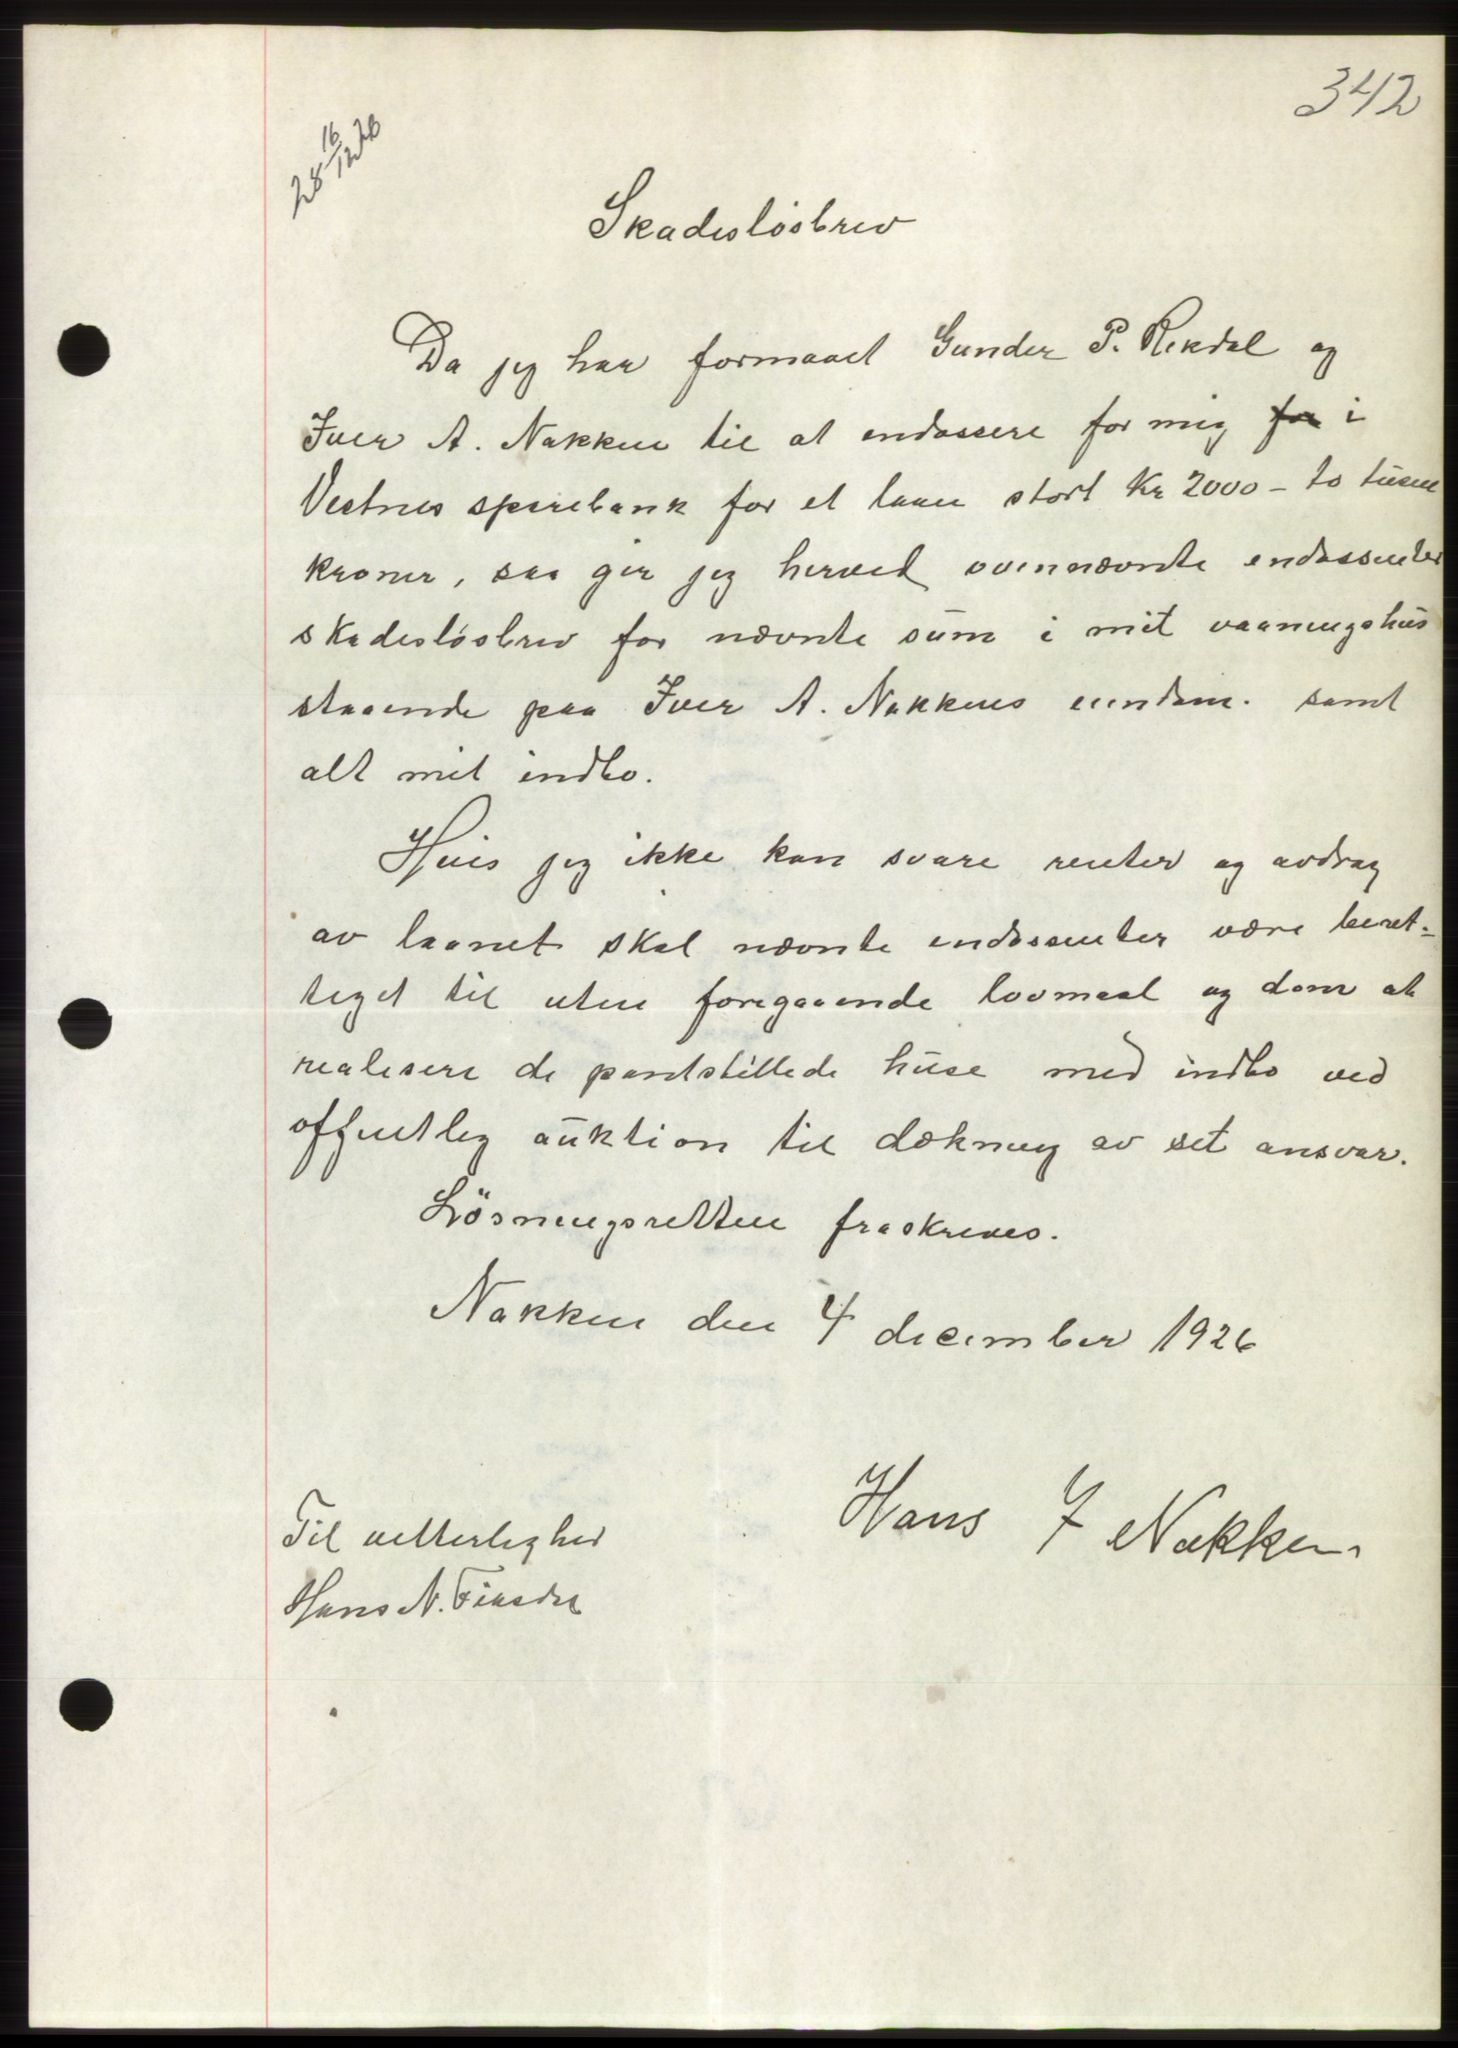 342
28 16/12 26
Skadesløsbrev
Da jeg har formaaet Gunder P. Rekdal og
Iver A. Nakken til at endossere for mig for i
Vestnes sparebank for et laan stort Kr 2000 - to tusen
kroner, saa gir jeg herved ovennævnte endossenter
skadesløsbrev for nævnte sum i mit vaaningshus
staaende paa Iver A. Nakkens eiendom. samt
alt mit indbo.
Hvis jeg ikke kan svare renter og avdrag
av laanet skal nævnte endossenter være beret-
tiget til uten foregaaende lovmaal og dom at
realisere de pantstillede huse med indbo ved
offentlig auktion til dækning av sit ansvar.
Løsningsretten fraskrives.
Nakken den 4 december 1926
Hans I Nakken.
Til vitterlighed
Hans N.